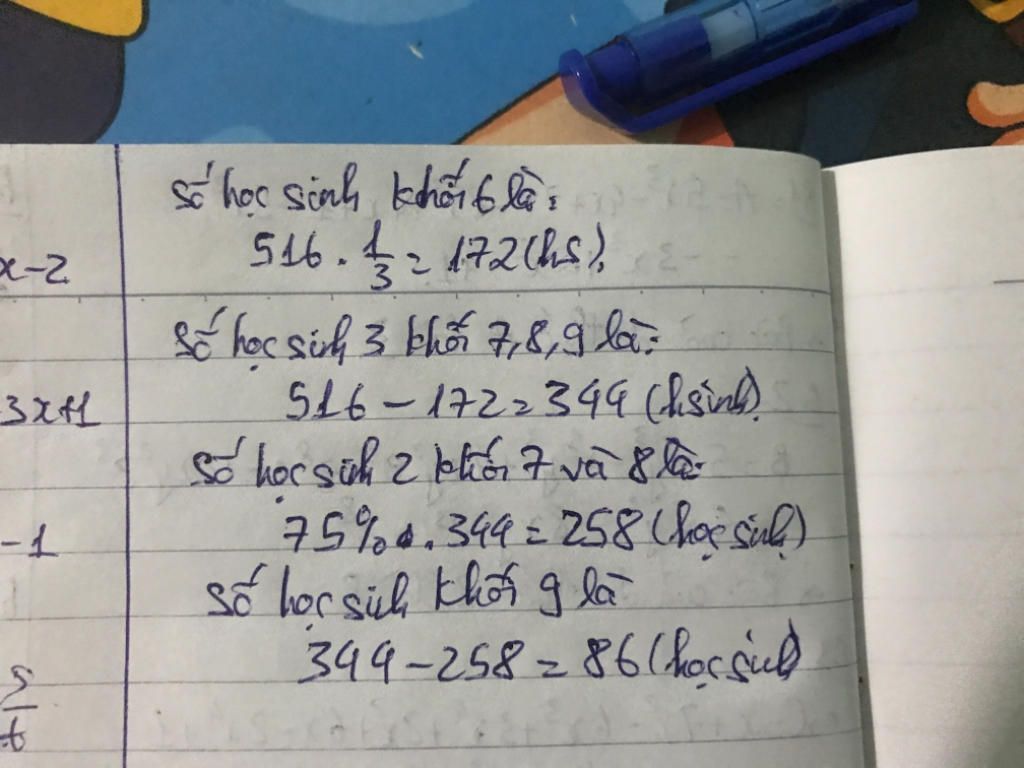 x-2
3x+1
-1
5
6
Số học sinh khối 6 là:
516 . 1/3 = 172 (hs).
Số học sinh 3 khối 7, 8, 9 là:
516 - 172 = 344 (hsinh)
Số học sinh 2 khối 7 và 8 là:
75% . 344 = 258 (học sinh)
Số học sinh khối 9 là
344 - 258 = 86 (học sinh)